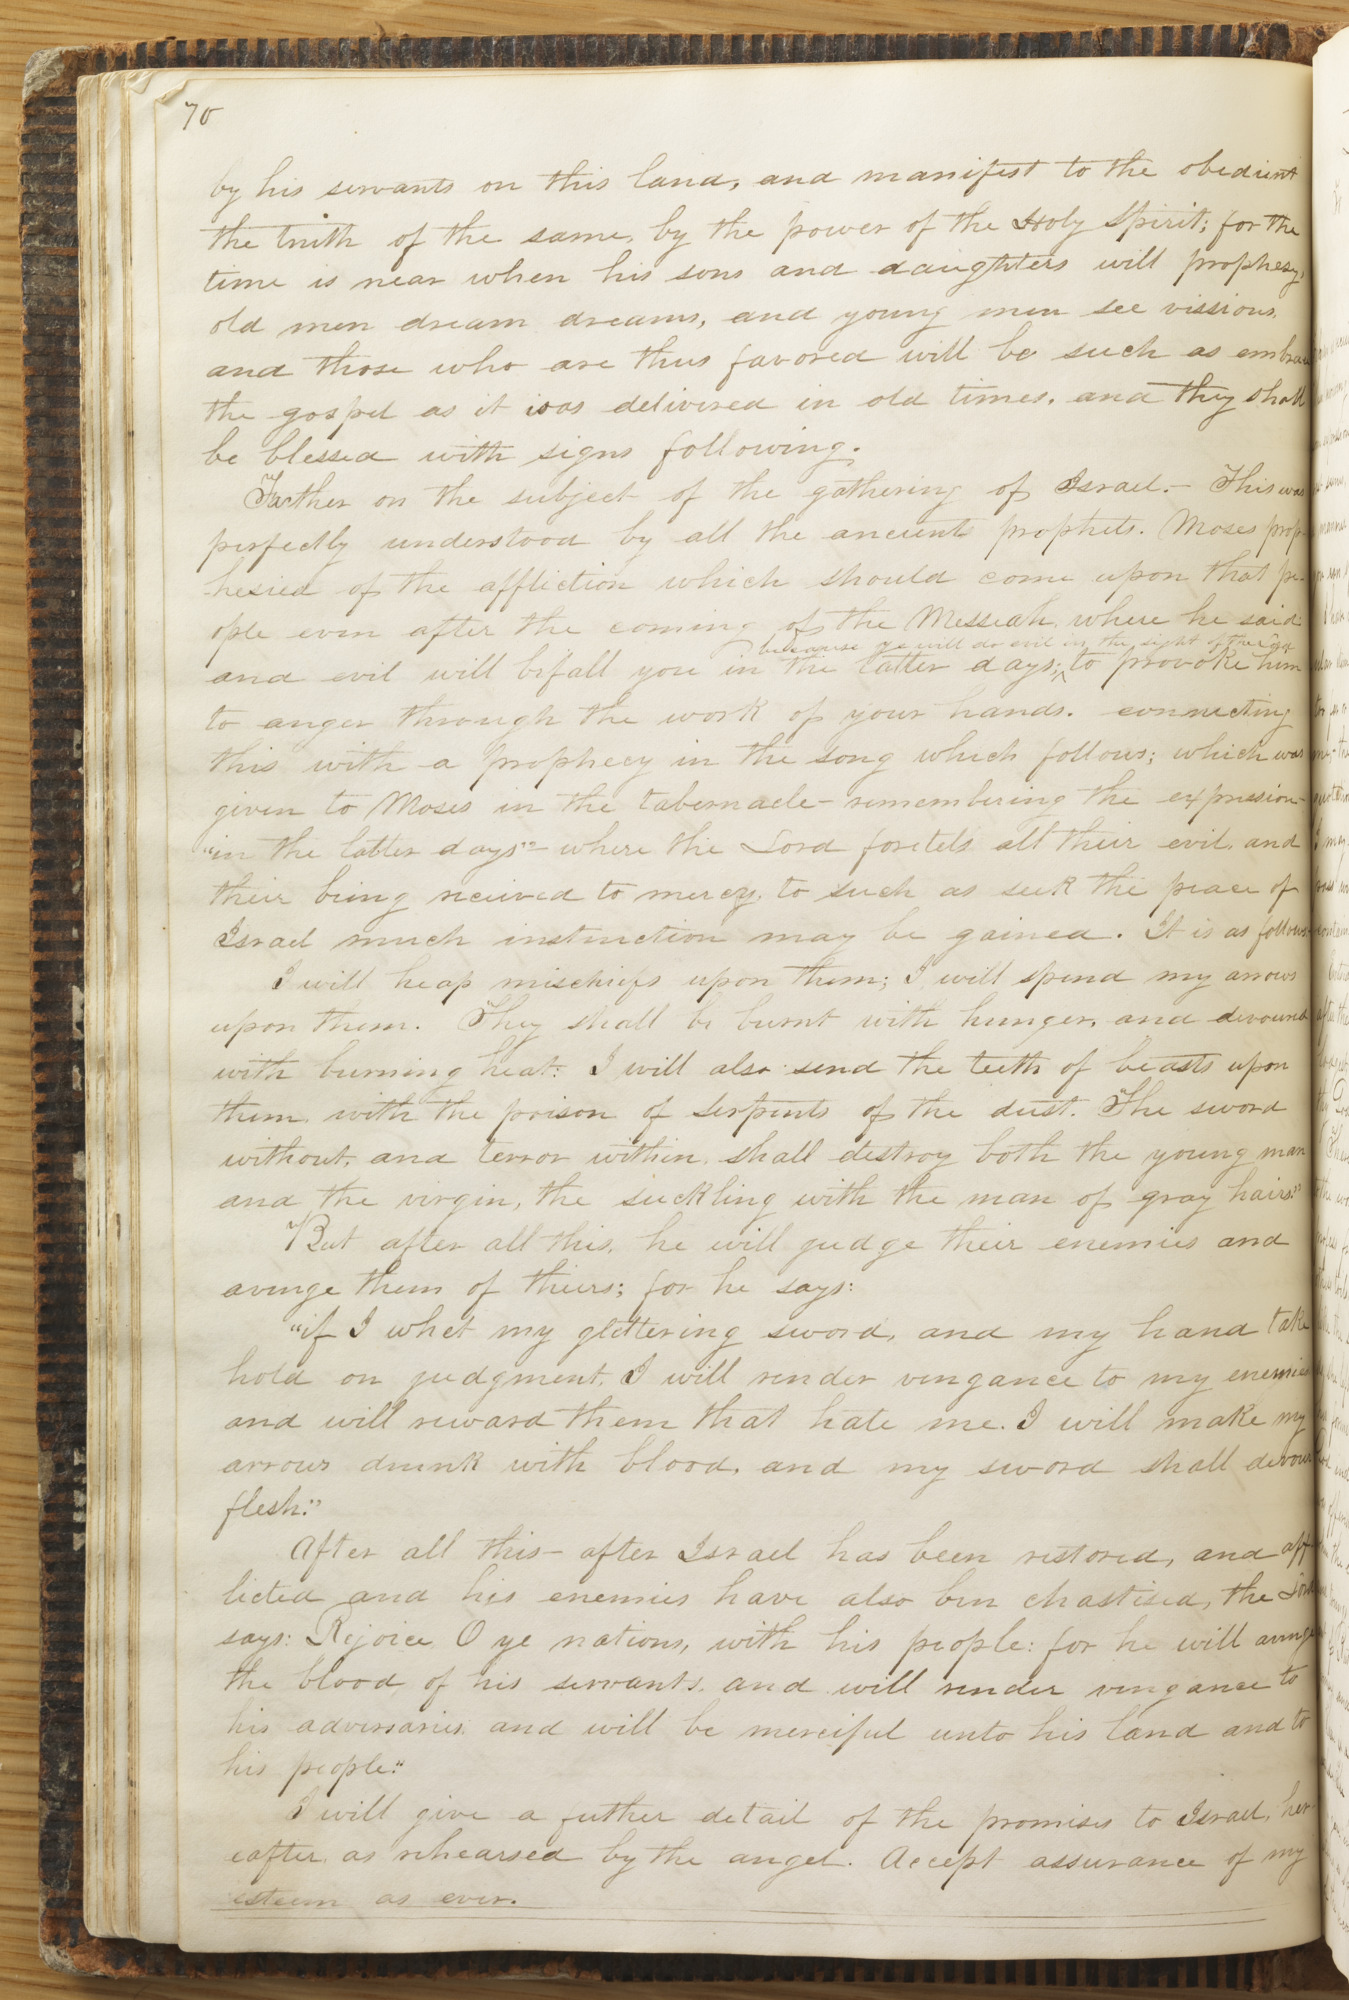 70
by his servants on this land, and manifest to the obedient
the truth of the same, by the power of the Holy Spirit; for the
time is near when his sons and daughters will prophesy,
old men dream dreams, and young men see vissions,
and those who are thus favored will be such as embrace
the gospel as it was delivered in old times, and they shall
be blessed with signs following.
Futher on the subject of the gathering of Israel.- This was
perfectly understood by all the ancient prophets. Moses prop-
hesied of the affliction which should come upon that pe-
ople even after the coming of the Messiah, where he said:
because ye will do evil in the sight of the Lord
and evil will befall you in the latter days; to provoke him
to anger through the work of your hands. connecting
this with a prophecy in the song which follows; which was
given to Moses in the tabernacle- remembering the expression-
"in the latter days"- where the Lord foretels all their evil, and
their being received to mercy, to such as seek the peace of
Israel much instruction may be gained. It is as follows-
I will heap mischiefs upon them; I will spend my arrows
upon them. They shall be burnt with hunger, and devoured
with burning heat: I will also send the teeth of beasts upon
them, with the poison of serpents of the dust. The sword
without, and terror within, shall destroy both the young man
and the virgin, the suckling with the man of gray hairs."
But after all this, he will judge their enemies and
avenge them of theirs; for he says:
"if I whet my glittering sword, and my hand take
hold on judgment, I will render vengance to my enemies
and will reward them that hate me. I will make my
arrows drunk with blood, and my sword shall devour
flesh."
After all this- after Israel has been restored, and aff-
licted and his enemies have also ben chastised, the Lord
says: Rejoice, O ye nations, with his people: for he will avenge
the blood of his servants, and will render vengance to
his adversaries, and will be merciful unto his land and to
his people."
I will give a futher detail of the promises to Israel, her-
eafter, as rehearsed by the angel. Accept assurance of my
esteem as ever.